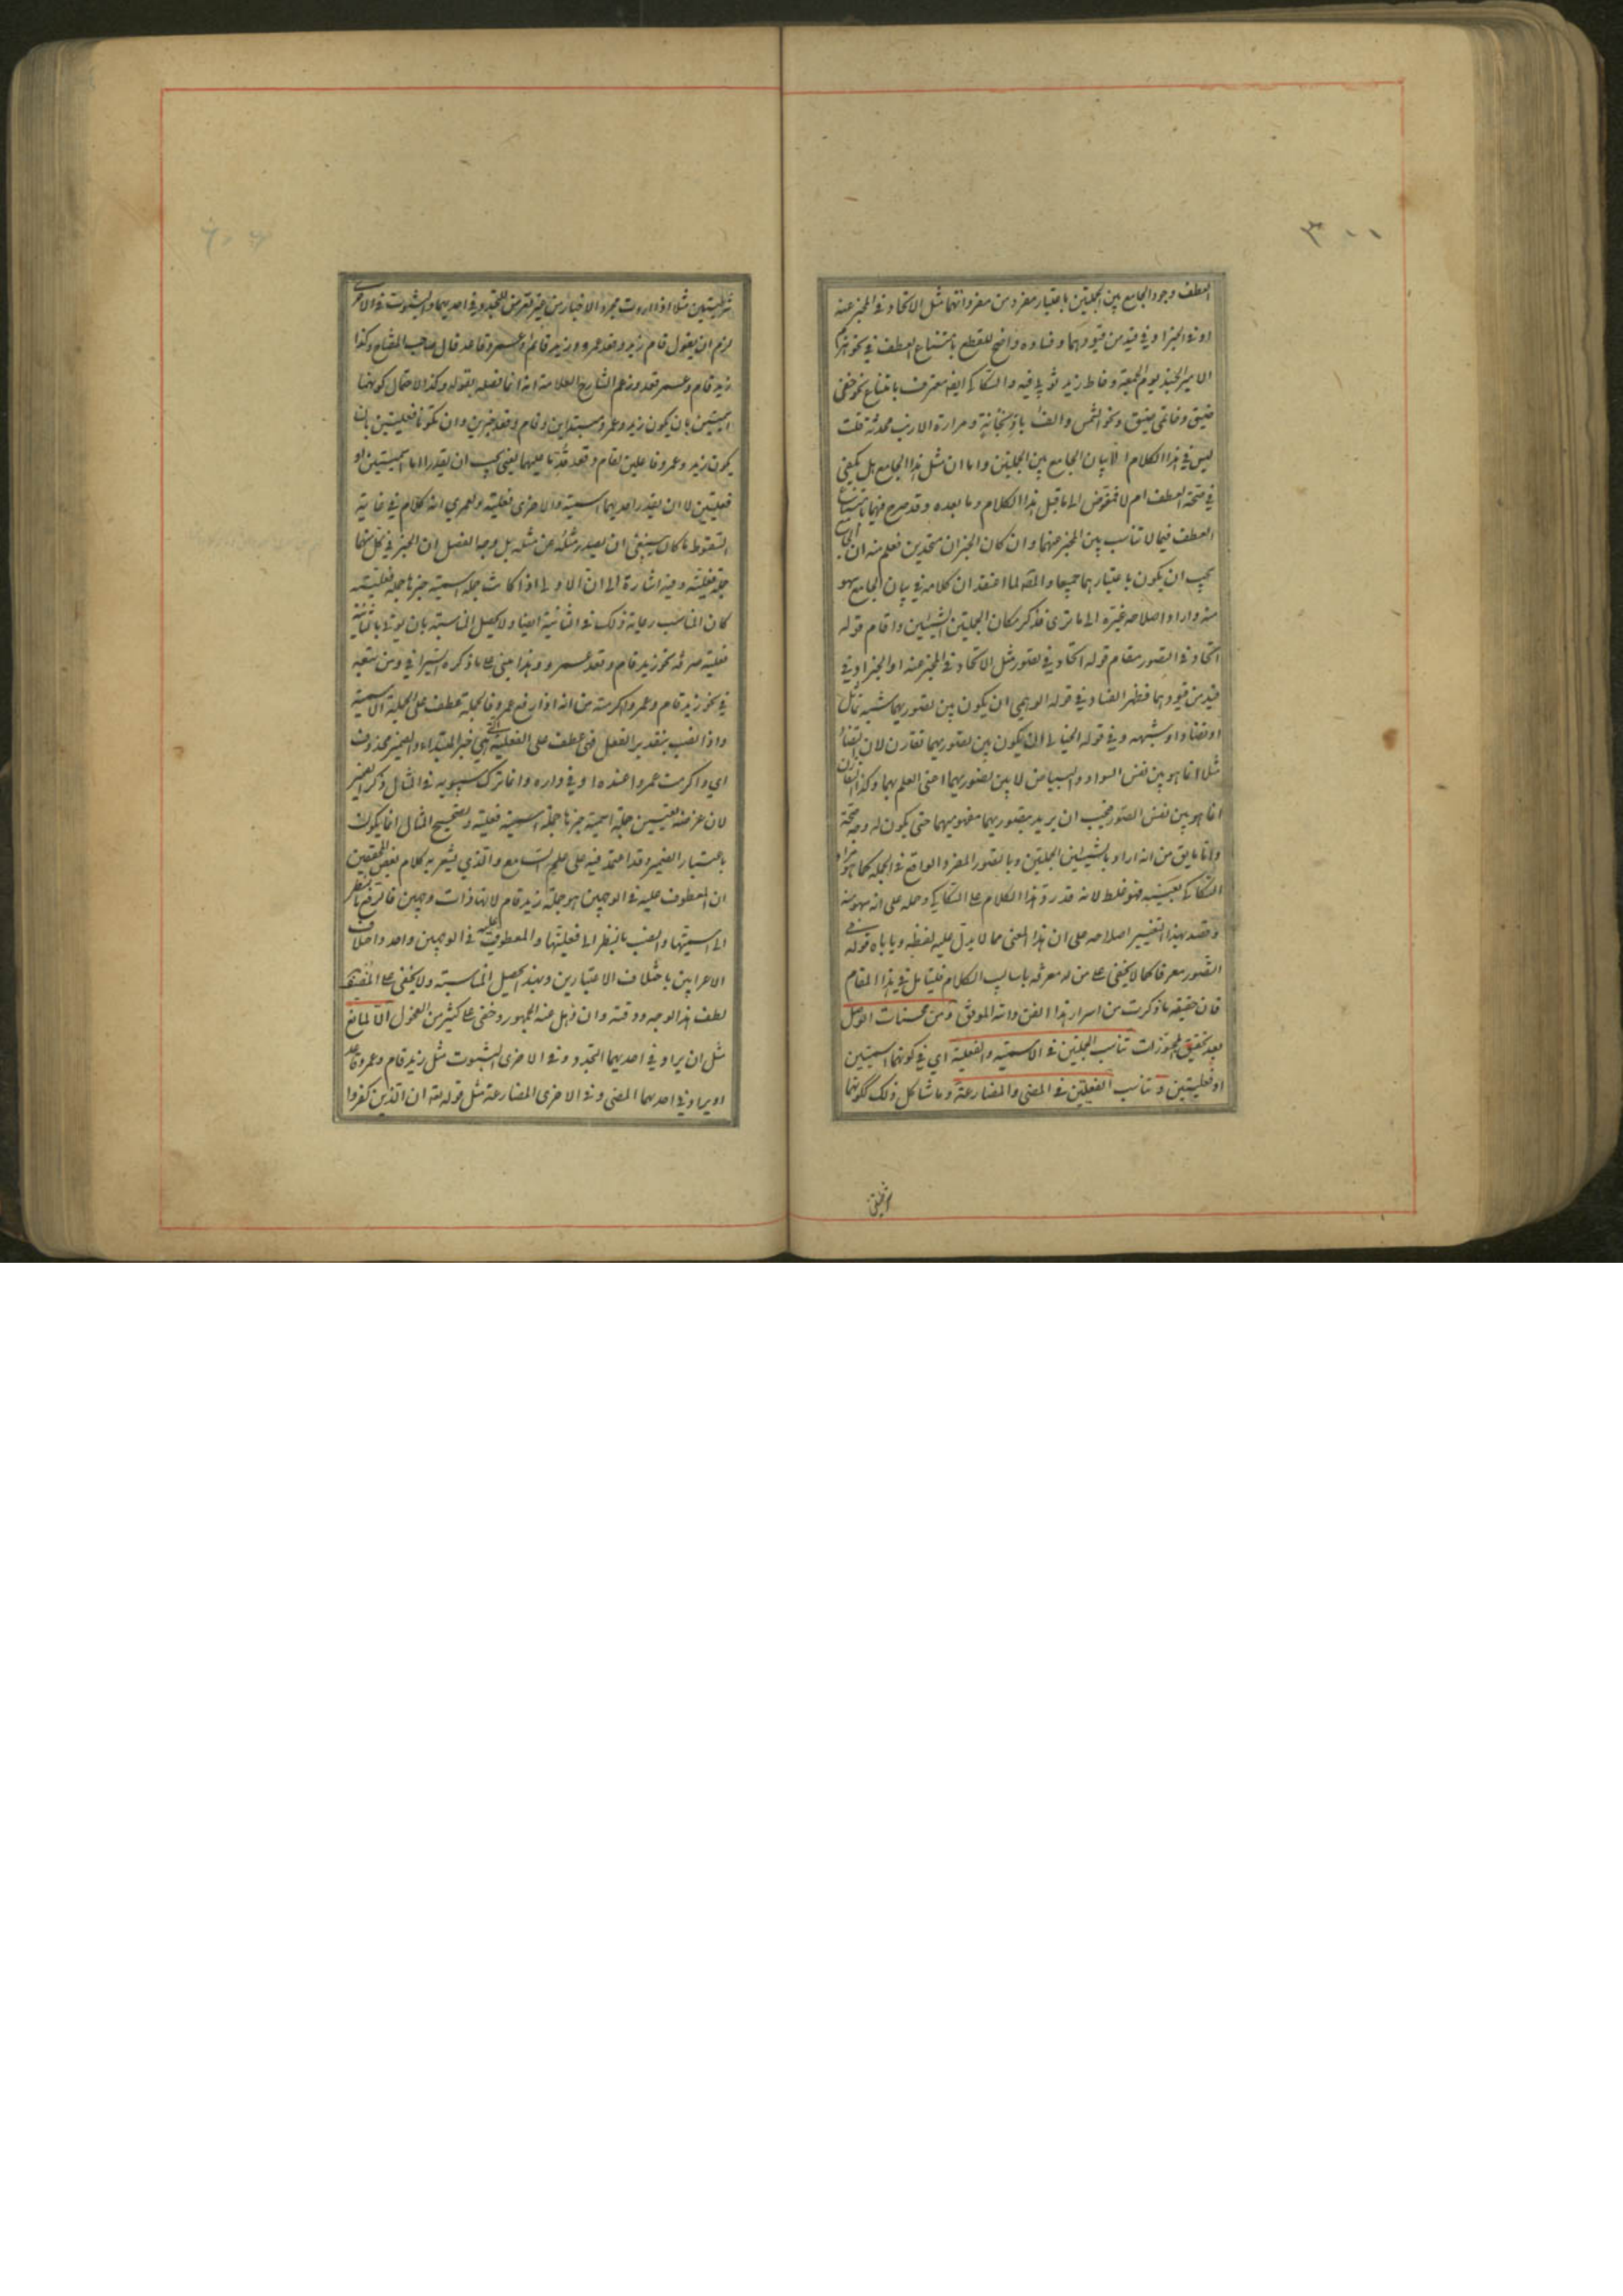 ٣٠٠
العطف وجود الجامع بين الجملتين باعتبار مفرد من مفرداتهما مثل الاتحاد فى المخبر عنه
او فى الخبر او فى قيد من قيودهما وفساده واضح للقطع بامتناع العطف فى نحو هزم
الامير الجند يوم الجمعة وخاط زيد ثوبه فيه والسكاكى ايضا معترف بامتناع نحو خفى
ضيق وخاتمى ضيق ونحو الشمس والف باذنجانة ومرارة الارنب محدثة قلت
ليس فى هذا الكلام الا بيان الجامع بين الجملتين واما ان مثل هذا الجامع هل يكفى
فى صحة العطف ام لا فمفوض الى ما قبل هذا الكلام وما بعده وقد صرح فيهما بامتناع
العطف فيما لا تناسب بين المخبر عنهما وان كان الخبران متحدين فعلم منه ان الجامع
يجب ان يكون باعتبارهما جميعا والمصـ لما اعتقد ان كلامه فى بيان الجامع سهو
منه واراد اصلاحه غيره الى ما ترى فذكر مكان الجملتين الشيئين واقام قوله
اتحاد فى التصور مقام قوله اتحاد فى تصور مثل الاتحاد فى المخبر عنه او الخبر او فى
قيد من قيودهما فظهر الفساد فى قوله الوهمى ان يكون بين تصوريهما شبه تماثل
او تضاد او شبهه وفى قوله الخيالى ان يكون بين تصوريهما تقارن لان التضاد
مثلا انما هو بين نفس السواد والبياض لا بين تصوريهما اعنى العلم بهما وكذا التقارن
انما هو بين نفس الصور فيجب ان يريد بتصوريهما مفهوميهما حتى يكون له وجه صحة
واما ما يق من انه اراد بالشيئين الجملتين وبالتصور المفرد الواقع فى الجملة كما هو مراد
السكاكى بعينه فهو غلط لانه قد رد هذا الكلام على السكاكى وحمله على انه سهو منه
وقصد بهذا التغيير اصلاحه على ان هذا المعنى مما لا يدل عليه لفظه ويأباه قوله فى
التصور معرفا كما لا يخفى على من له معرفة باساليب الكلام فليتامل فى هذا المقام
فان حقيقه ما ذكرت من اسرار هذا الفن والله الموفق ومن محسنات الوصل
بعد تحقق المجوزات تناسب الجملتين فى الاسمية والفعلية اى فى كونهما اسميتين
او فعليتين و تناسب الفعليتين فى المضى والمضارعة وما شاكل ذلك ككونهما
شرطيتين مثلا اذا اردت مجرد الاخبار من غير تعرض للتجدد فى احديهما والثبوت فى الاخرى
لزم ان يقول قام زيد وقعد عمرو وزيد قائم وعمرو قاعد قال صاحب المفتاح وكذا
زيد قام وعمرو قعد وزعم الشارح العلامة انه انما فصله بقوله وكذا لاحتمال كونهما
اسميتين بان يكون زيد وعمرو مبتداين وقام وقعد خبرين وان تكونا فعليتين بان
يكون زيد وعمرو فاعلين لقام وقعد قدما عليهما يعنى يجب ان يقدر اما اسميتين او
فعليتين لا ان يقدر احديهما اسمية والاخرى فعلية ولعمرى انه كلام فى غاية
السقوط ما كان ينبغى ان يصدر مثله عن مثله بل وجه الفصل ان الخبر فى كل منهما
جملة فعلية وفيه اشارة الى ان الاولى اذا كانت جملة اسمية خبرها جملة فعلية
كان المناسب رعاية ذلك فى الثانية ايضا ولا يحصل المناسبة بان يؤتى بالثانية
فعلية صرفة نحو زيد قام وقعد عمرو وهذا مبنى على ما ذكره السيرافى ومن تبعه
فى نحو زيد قام وعمرو اكرمته من انه اذا رفع عمرو فالجملة عطف على الجملة الاسمية
واذا نصب بتقدير الفعل فهى عطف على الفعلية التى هى خبر المبتداء والضمير محذوف
اى واكرمت عمروا عنده او فى داره وانما ترك سيبويه فى المثال ذكر الضمير
لان غرضه تعيين جملة اسمية خبرها جملة فعلية وتصحيح المثال انما يكون
باعتبار الضمير وقد اعتمد فيه على علم السامع والذى يشعر به كلام بعض المحققين
ان المعطوف عليه فى الوجهين هو جملة زيد قام لانها ذات وجهين فالرفع بالنظر
الى اسميتها والنصب بالنظر الى فعليتها والمعطوف عليه فى الوجهين واحد واختلاف
الاعرابين باختلاف الاعتبارين وبهذا يحصل المناسبة ولا يخفى على المنصف
لطف هذا الوجه ودقته وان ذهل عنه الجمهور وخفى على كثير من الفحول الا لمانع
مثل ان يراد فى احديهما التجدد وفى الاخرى الثبوت مثل زيد قام وعمرو قاعد
او يراد فى احديهما المضى وفى الاخرى المضارعة مثل قوله تعه ان الذين كفروا